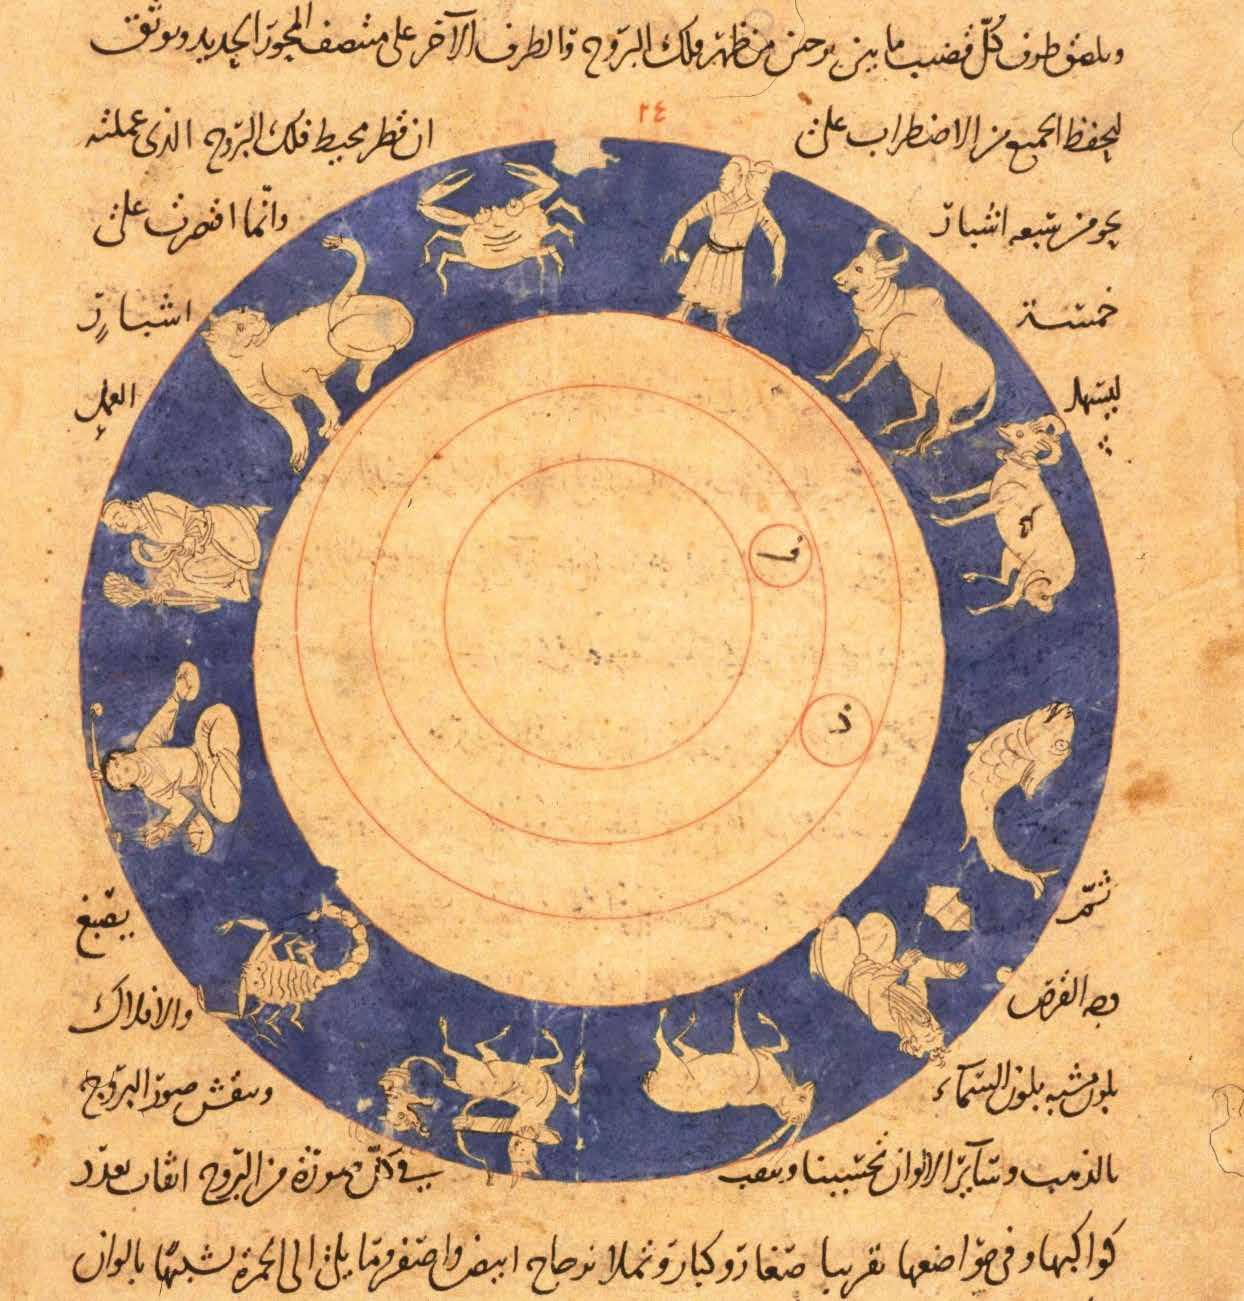 ويلصق طرف كل قضيب ما بين برجين من ظهر فلك البروج والطرف الآخر على منتصف المحور الجديد ويوثق
٢٤
ليحفظ الجميع من الاضطراب على ان قطر محيط فلك البروج الذى عملته
نحو من سبعه اشبار وانما اقتصرت على
خمسة اشبار
ليسهل العمل
فا
ذ
ثم يصبغ
القرص والافلاك
بلون مشبه بلون السماء وينقش صور البروج
بالذهب وسائر الالوان تحسينا ويثقب فى كل صورة من البروج اثقاب بعدد
كواكبها وفى مواضعها تقريبا صغار وكبار وتملا بزجاج ابيض واصفر وما يلى الى الحمرة تشبيها بالوان